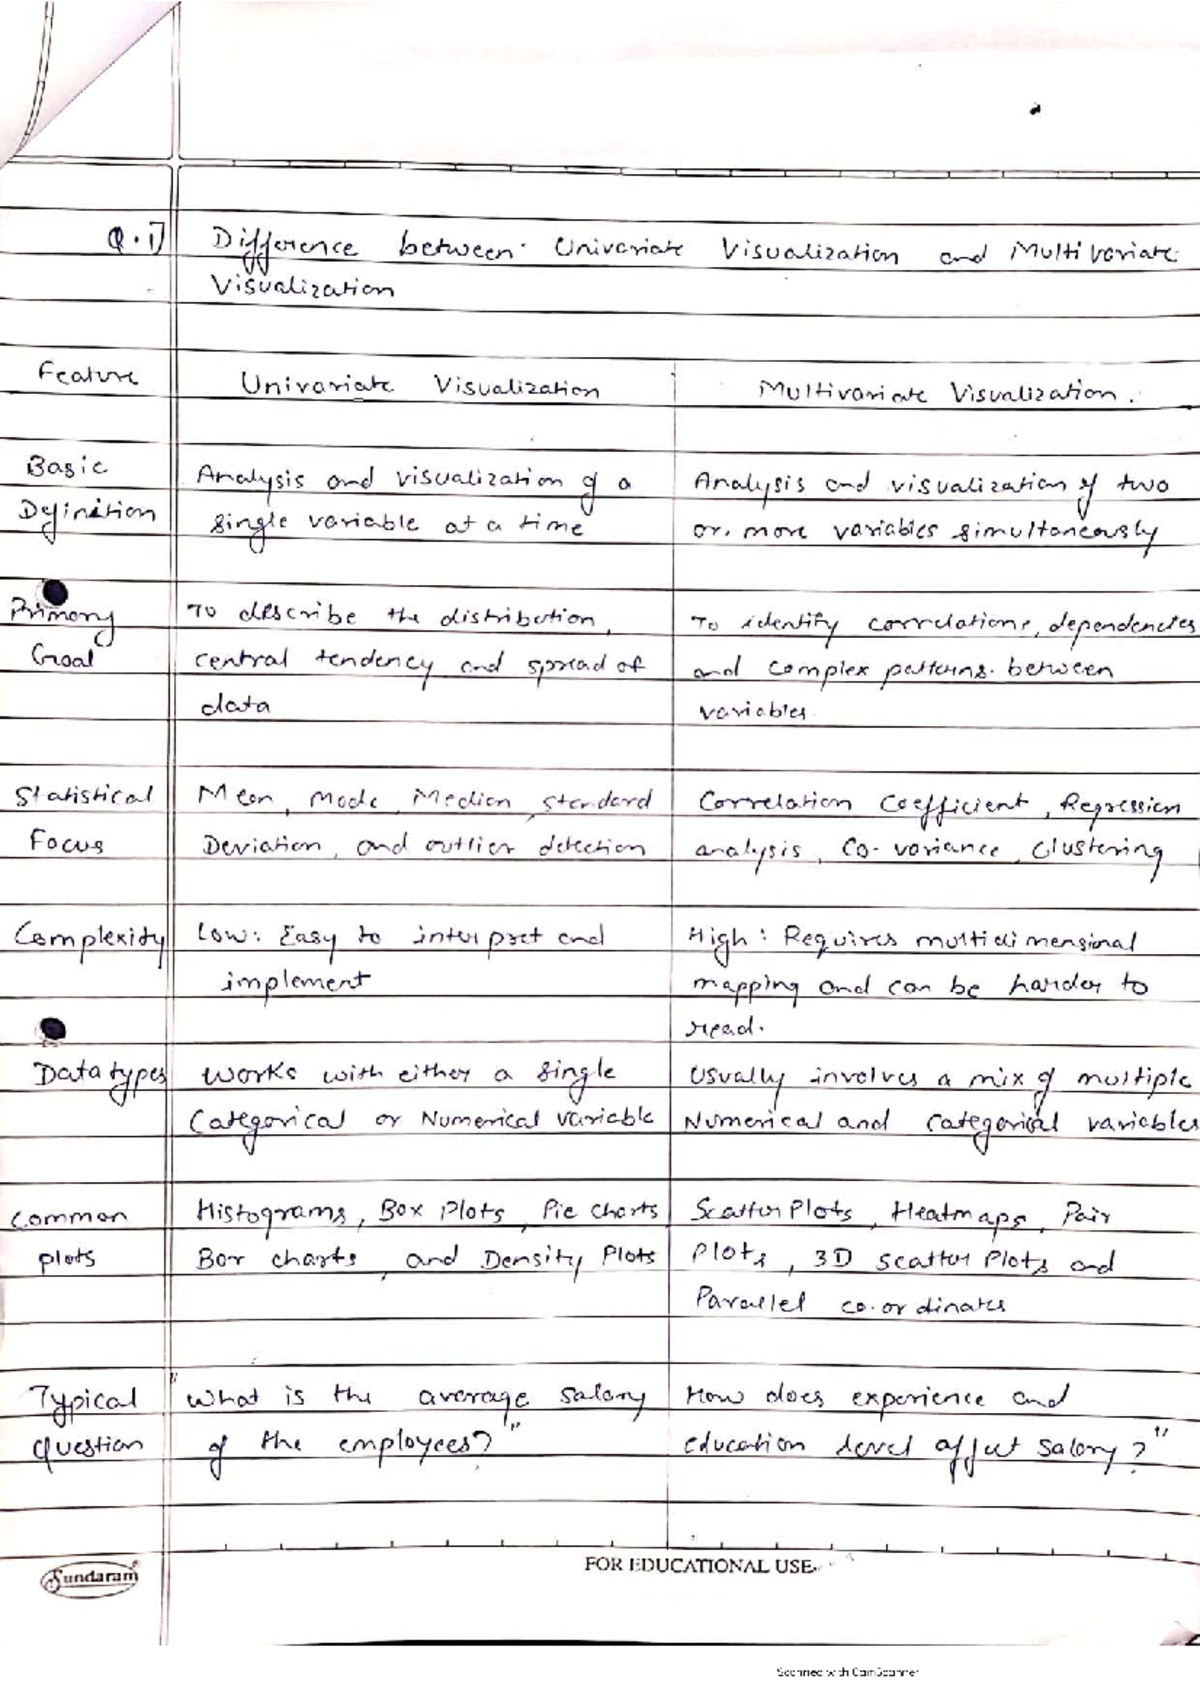 Q.1) Difference between Univariate Visualization and Multivariate
Visualization
Feature Univariate Visualization Multivariate Visualization.
Basic Analysis and visualization of a Analysis and visualization of two
Definition single variable at a time or more variables simultaneously
Primary To describe the distribution, To identify correlations, dependencies
Goal central tendency and spread of and complex patterns between
data variables
Statistical Mean, Mode, Median, standard Correlation Coefficient, Regression
Focus Deviation, and outlier detection analysis, Co-variance, Clustering
Complexity Low: Easy to interpret and High: Requires multidimensional
implement mapping and can be harder to
read.
Data types Works with either a single Usually involves a mix of multiple
Categorical or Numerical variable Numerical and Categorical variables
Common Histograms, Box Plots, Pie charts Scatter Plots, Heatmaps, Pair
plots Bar charts, and Density Plots Plots, 3D scatter Plots and
Parallel co-ordinates
Typical "What is the average salary How does experience and
question of the employees?" education level affect salary?"
Sundaram FOR EDUCATIONAL USE
Scanned with CamScanner